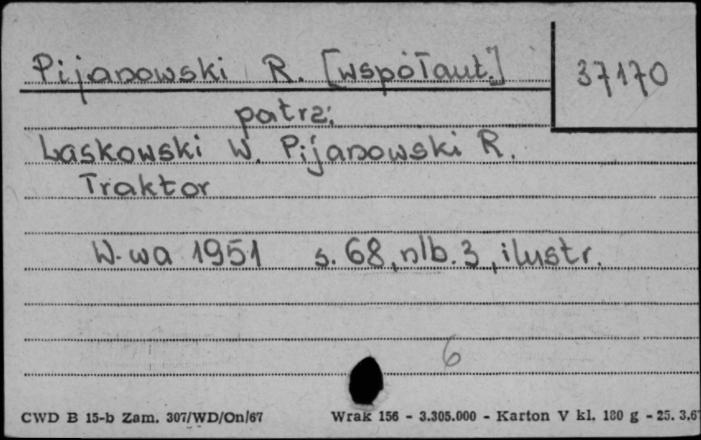 Pijanowski R. [współaut.] 37170
patrz:
Laskowski W. Pijanowski R.
Traktor
W-wa 1951 s. 68, nlb. 3, ilustr.
6
CWD B 15-b Zam. 307/WD/On/67 Wrak 156 - 3.305.000 - Karton V kl. 180 g - 25. 3.67